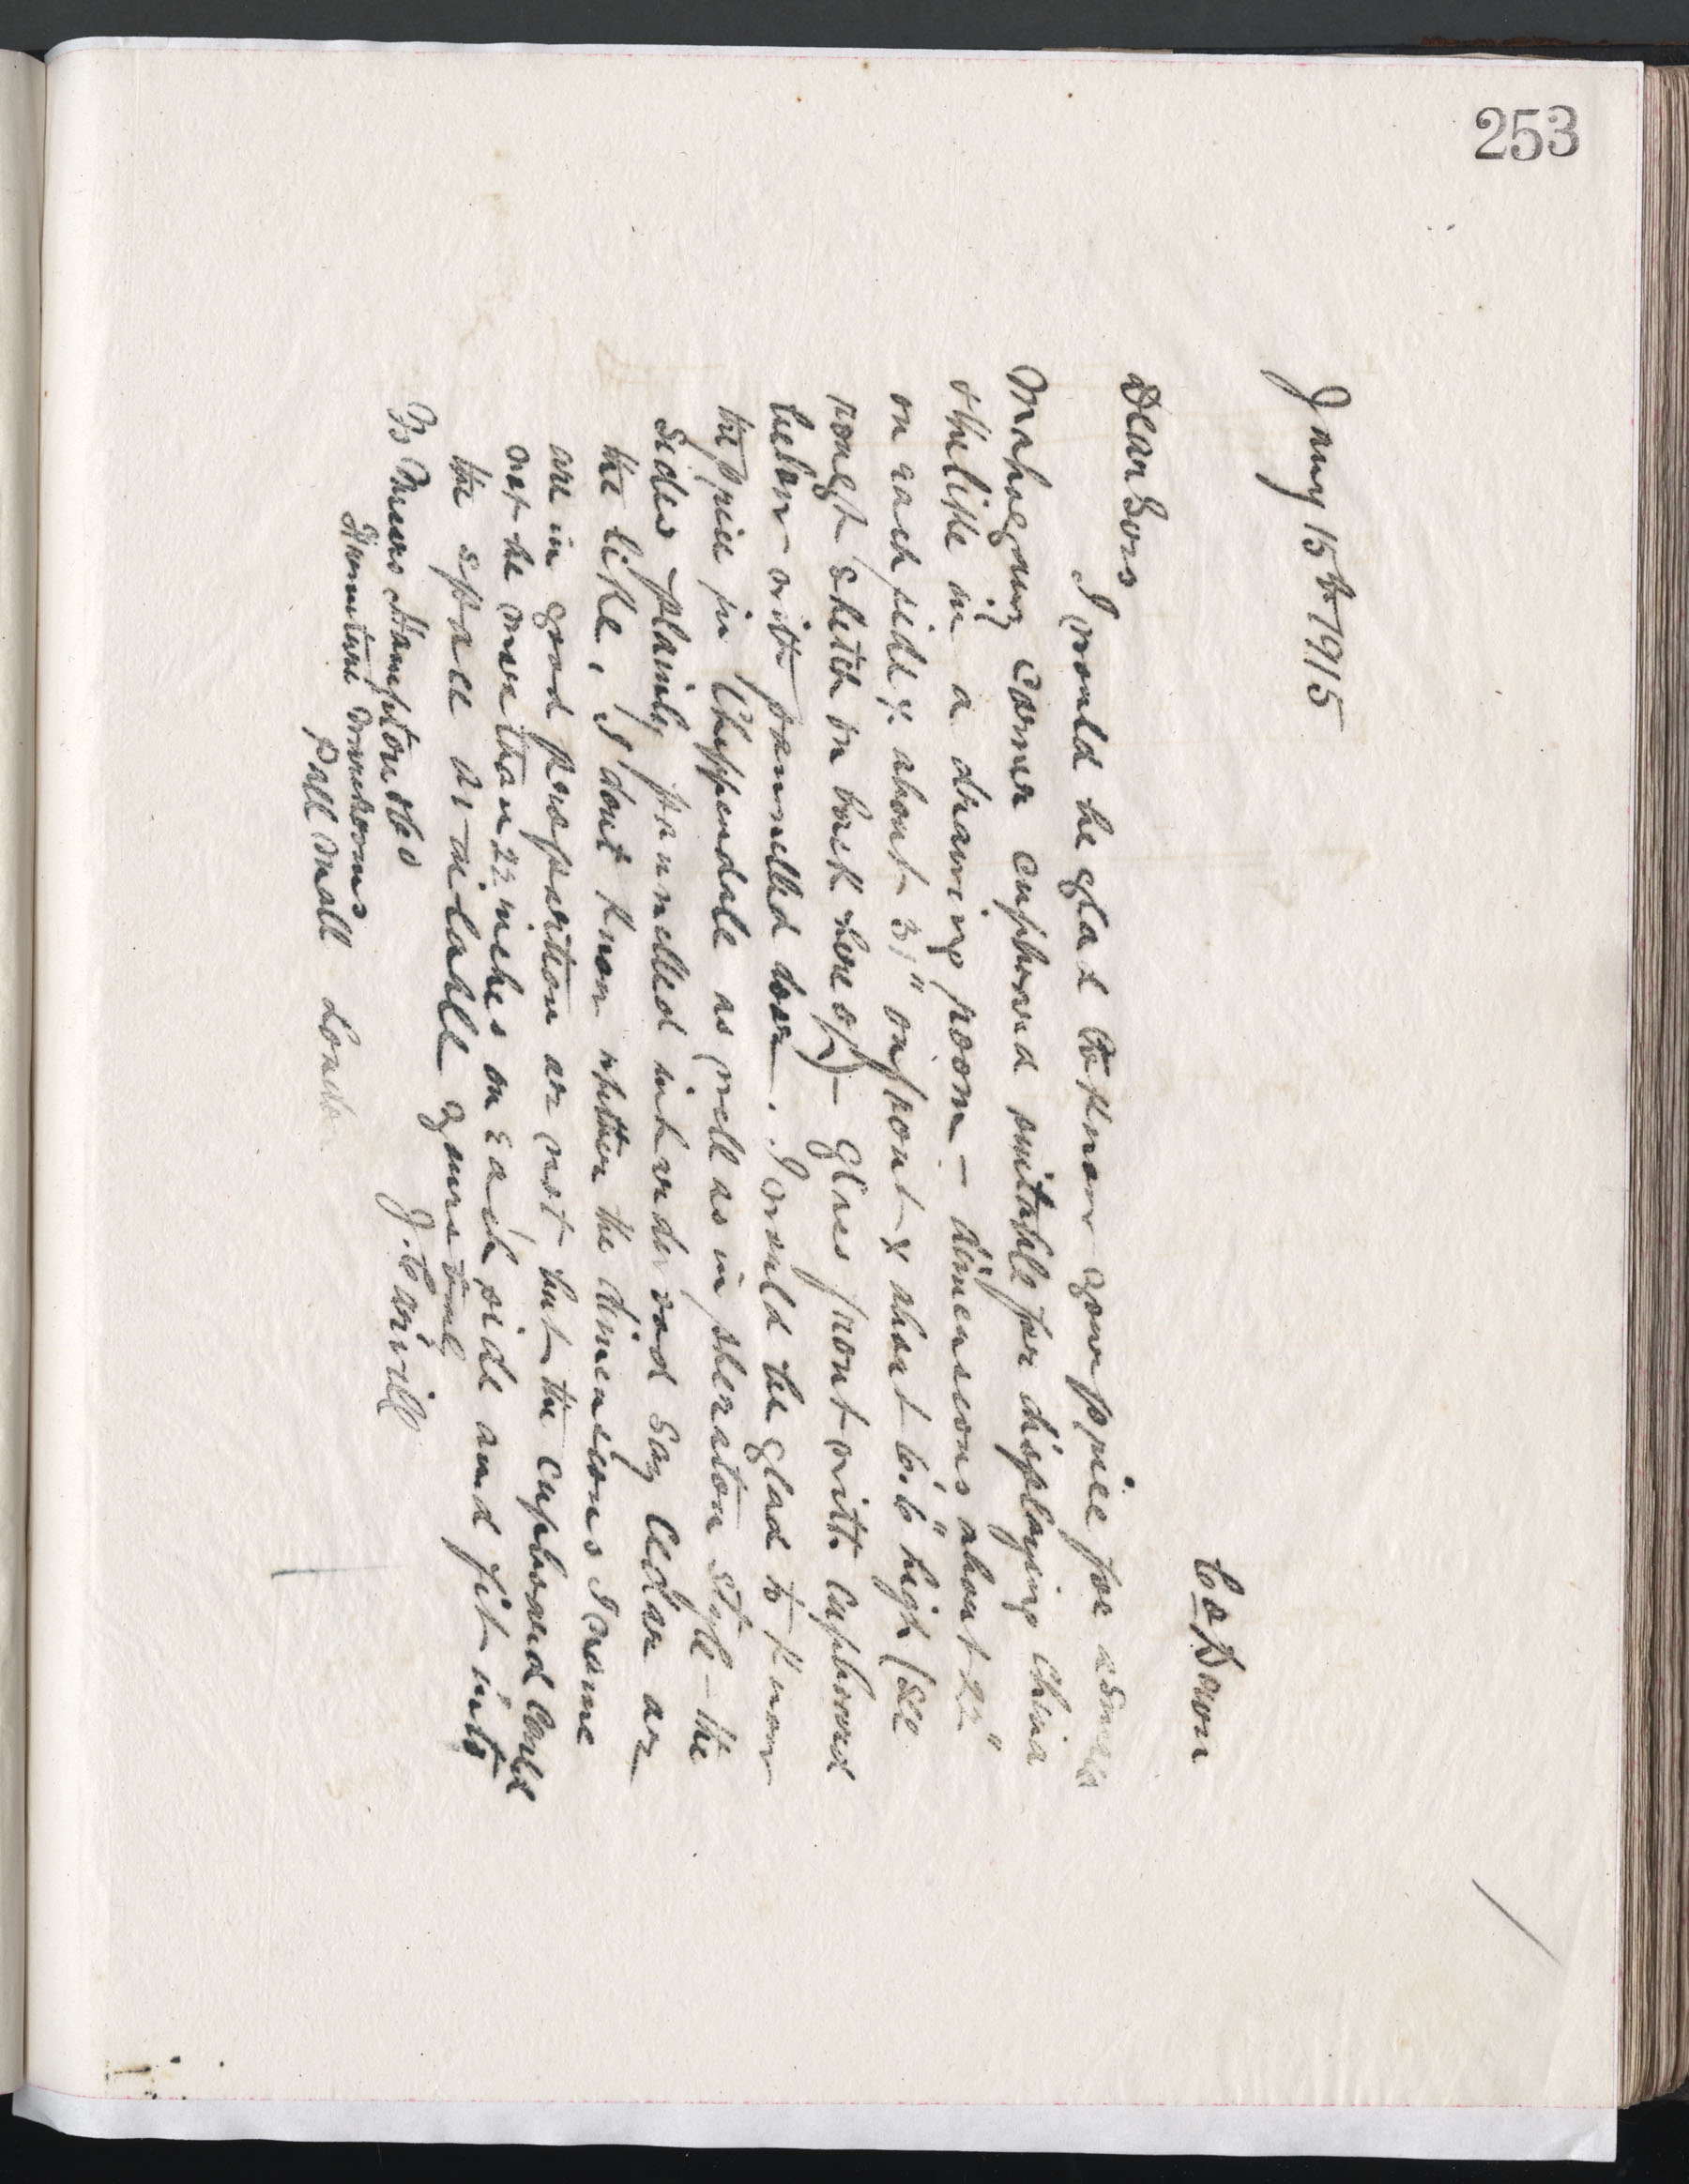 253
Co Down
Jany 15th 1915
Dear Sirs
I would be glad to know your price for a small
Mahogany corner cupboard suitable for displaying china
& the like in a drawing room - dimensions about 22"
on each side x about 31" on front x about 6'.6" high (see
rough sketch on back hereof) - glass front with cupboard
below with pannelled door. I would be glad to know
the price in Chippendale as well as in Sheraton style - the
sides plainly pannelled in hard wood say Cedar or
the like, I dont know whether the dimensions I name
are in good proportion or not but the cupboard could
not be more than 22 inches on each side and fit into
the space available yours truly
J. Carvill
To Messrs Hampton & Sons
Furniture Warerooms
Pall Mall London